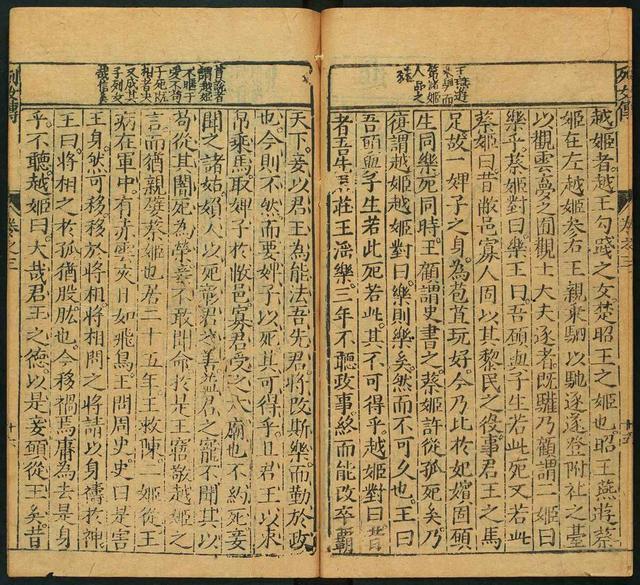 越姬者越王勾踐之女楚昭王之姬也昭王燕遊蔡
姬在左越姬參右王親乘駟以馳逐遂登附社之臺
以觀雲夢之囿觀士大夫逐者既驩乃顧謂二姬曰
樂乎蔡姬對曰王曰吾願與子生若此死又若此
蔡姬曰昔敝邑寡人固以其黎民之役事君王之馬
足故一婢子之身為苞苴玩好今乃比於妃嬪固願
生同樂死同時王顧謂史書之蔡姬許從孤死矣乃
復謂越姬越姬對曰樂則樂矣然而不可久也王曰
吾願與子生若此死若此其不可得乎越姬對曰昔
者吾先君莊王淫樂三年不聽政事終而能改卒霸
天下妾以君王為能法吾先君將改斯樂而勤於政
也今則不然而要婢子以死其可得乎且君王以束
帛乘馬取婢子於敝邑寡君受之太廟也不約死妾
聞之諸姑婦人以死彰君之善益君之寵不聞其以
苟從其闇死為榮妾不敢聞命於是王寤敬越姬之
言而猶親嬖蔡姬也居二十五年王救陳二姬從王
病在軍中有赤雲夾日如飛鳥王問周史史曰是害
王身然可移移於將相將相聞之將請以身禱於神
王曰將相之於孤猶股肱也今移禍焉庸為去是身
乎不聽越姬曰大哉君王之德以是妾願從王矣昔
列女傳
卷之三